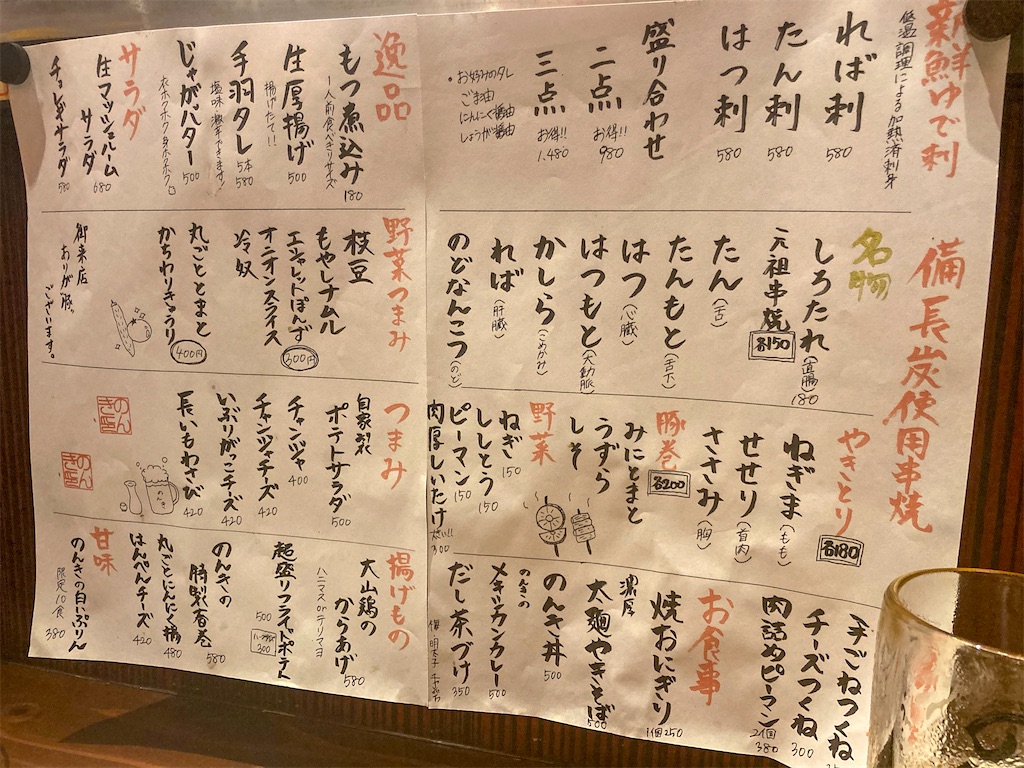 新鮮ゆで刺
低温調理による加熱済刺身
ればば刺 580
たん刺 580
はつ刺 580
盛り合わせ
二点 お得!! 980
三点 お得!! 1.480
・お好みのタレ
ごま油
にんにく醤油
しょうが醤油
備長炭使用串焼
名物
しろたれ(直腸) 180
元祖串焼 各150
たん(舌)
たんもと(舌下)
はつ(心臓)
はつもと(大動脈)
かしら(こめかみ)
れば(肝臓)
のどなんこつ(のど)
やきとり 各180
ねぎま(もも)
せせり(首肉)
ささみ(胸)
豚巻 各200
みにとまと
うずら
しそ
野菜
ねぎ 150
ししとう 150
ピーマン 150
肉厚しいたけ 太い!! 300
つくね
チーズつくね 300
肉詰めピーマン 2個 380
お食事
焼おにぎり 1個250
濃厚
太麺やきそば 500
のんき丼 500
のんきの
メキシカンカレー 500
だし茶づけ 350
逸品
もつ煮込み 180
一人前食べきりサイズ
生厚揚げ 500
揚げたて!!
手羽タレ 5本 580
塩味、激辛できます!
じゃがバター 500
サラダ
生マッシュルーム
サラダ 680
チョレギサラダ 580
野菜つまみ
枝豆
もやしナムル
エシャレットぽんず
オニオンスライス
冷奴
300円
丸ごととまと
かちわりきゅうり
400円
御来店
ありが豚。
ございます。
つまみ
自家製
ポテトサラダ 500
チャンジャ 400
チャンジャチーズ 420
いぶりがっこチーズ 420
長いもわさび 420
のんき
のんき
揚げもの
大山鶏の
からあげ 580
超盛りフライドポテト
500
300
のんきの
特製春巻 580
丸ごとにんにく揚 480
はんぺんチーズ 420
甘味
のんきの白いぷりん
限定10食 380